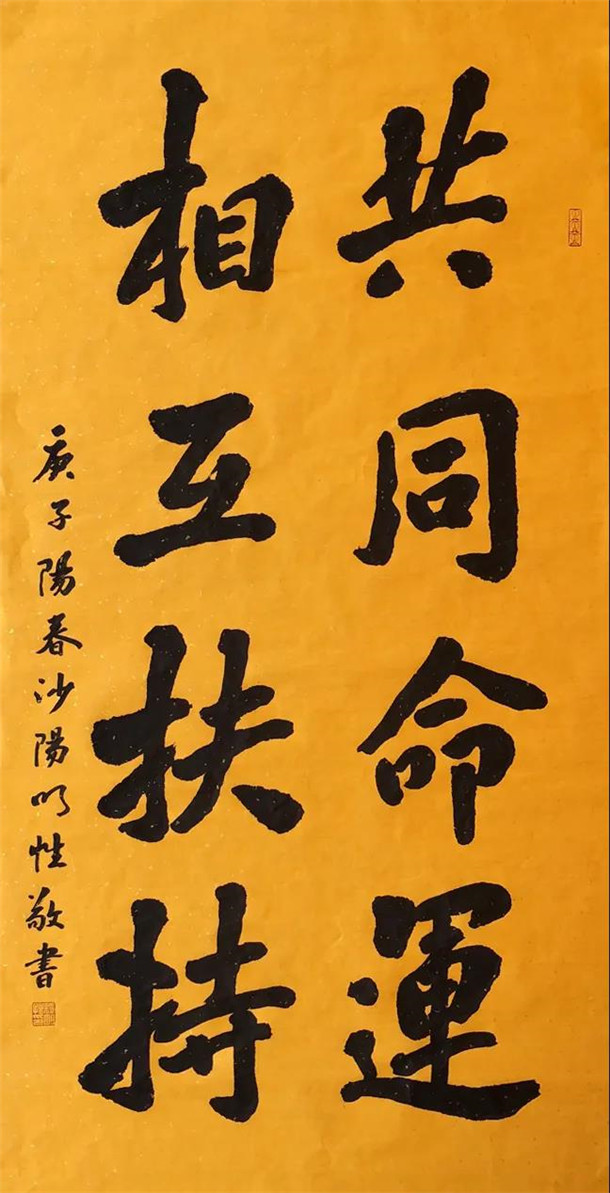 共同命運
相互扶持
庚子陽春沙陽明性敬書